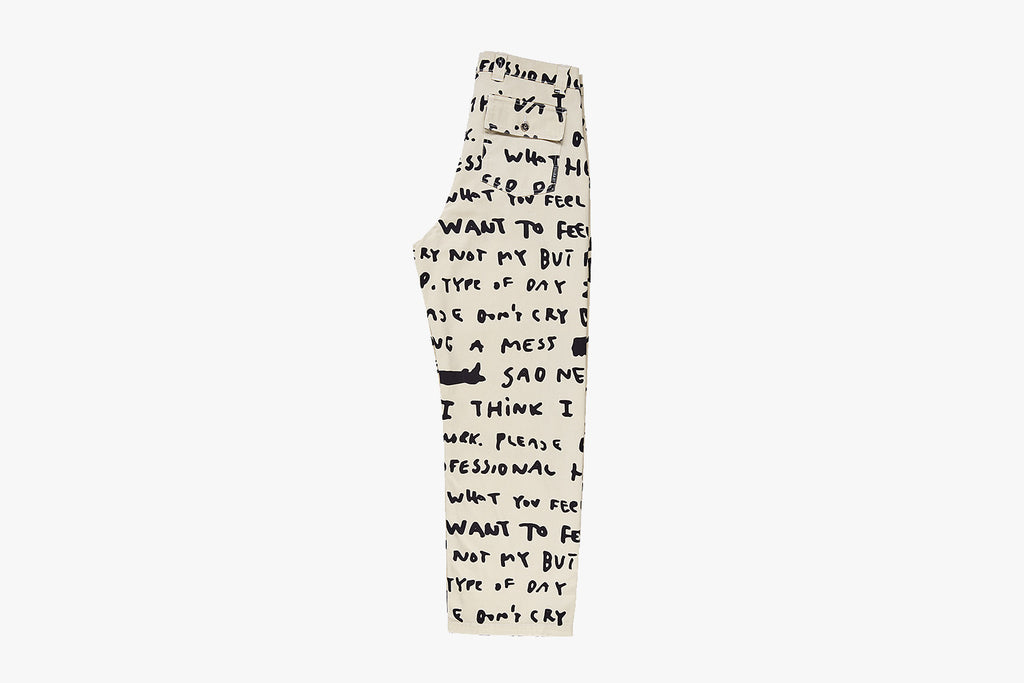 FESSION
I
WHAT
WHAT YOU FEEL
WANT TO FEEL
RY NOT MY BUT
D. TYPE OF DAY
ASE DON'T CRY
NG A MESS
SADNE
I THINK I
WORK. PLEASE
OFESSIONAL H
WHAT YOU FEEL
WANT TO FE
NOT MY BUT
TYPE OF DAY
E DON'T CRY